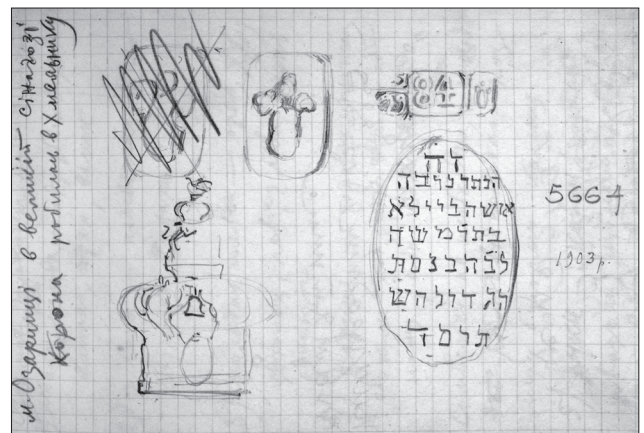 м. Озаринці в великій сінагозі
Корона робилась в Хмельнику
84
זה
הכתר נדבה
אשה ביילא
בת ר משה
לבה כנסת
הגדול הש
תרסד
5664
1903 р.